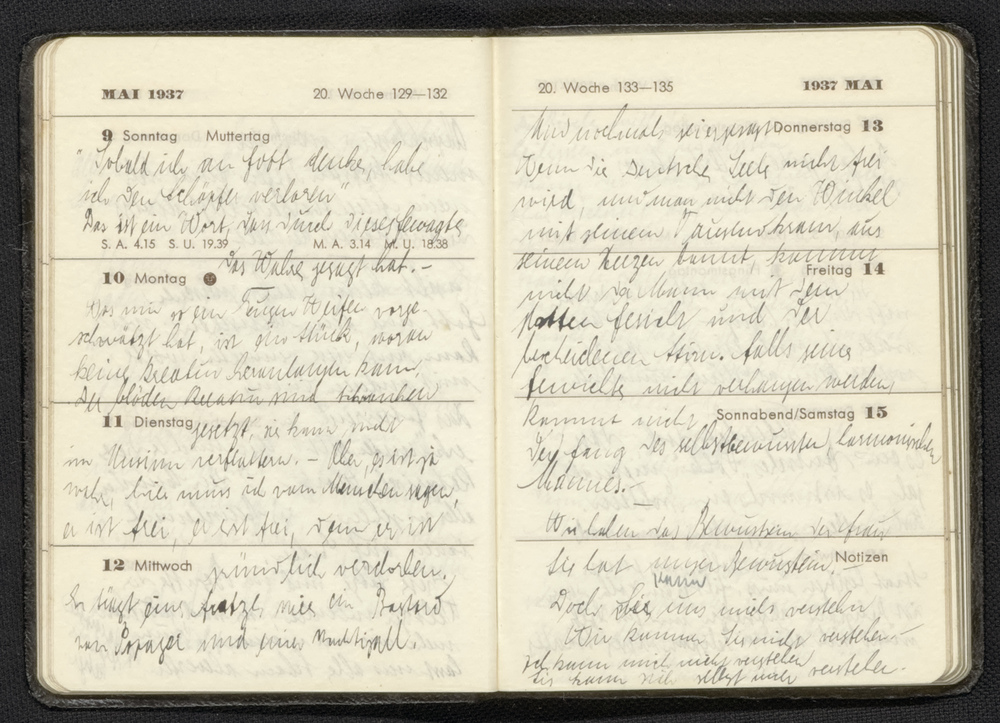 MAI 1937 20. Woche 129—132
9 Sonntag Muttertag
"Sobald ich an Gott denke, habe
ich den Schöpfer verloren"
Das ist ein Wort, das durch dieses
S. A. 4.15 S. U. 19.39 M. A. 3.14 M. U. 18.38
das Wahre gesagt hat. –
10 Montag
Was mir so ein
hat, ist ein Stück, woran
keine Kreatur heranlangen kann.
Der blöden Kreatur sind Schranken
11 Dienstag gesetzt, sie kann nicht
im Unsinn verflattern. – Aber, es ist ja
wahr, hier muss ich vom Menschen sagen,
er ist frei, er ist frei, denn er ist
12 Mittwoch gründlich verdorben.
Er trägt eine Fratze, wie ein Bastard
von Papagei und einer Nachtigall.
20. Woche 133—135 1937 MAI
Und nochmals sei gesagt Donnerstag 13
Wenn die deutsche Seele nicht frei
wird, und man nicht den Winkel
mit seinem Tausendkram, aus
seinem Herzen bannt, kommt
Freitag 14
nicht der Mann mit dem
Gesicht und der
bescheidenen Stirn. Falls seine
nicht verhangen werden,
kommt nicht Sonnabend/Samstag 15
Der Gang des selbstbewussten, harmonischen
Mannes. –
Wir haben das Bewustsein der Frau
Sie hat unser Bewustsein, – Notizen
kann
Doch sie uns nicht verstehn
Wir können Sie nicht verstehen –
ich kann mich nicht verstehen
Sie kann sich selbst nicht verstehen.